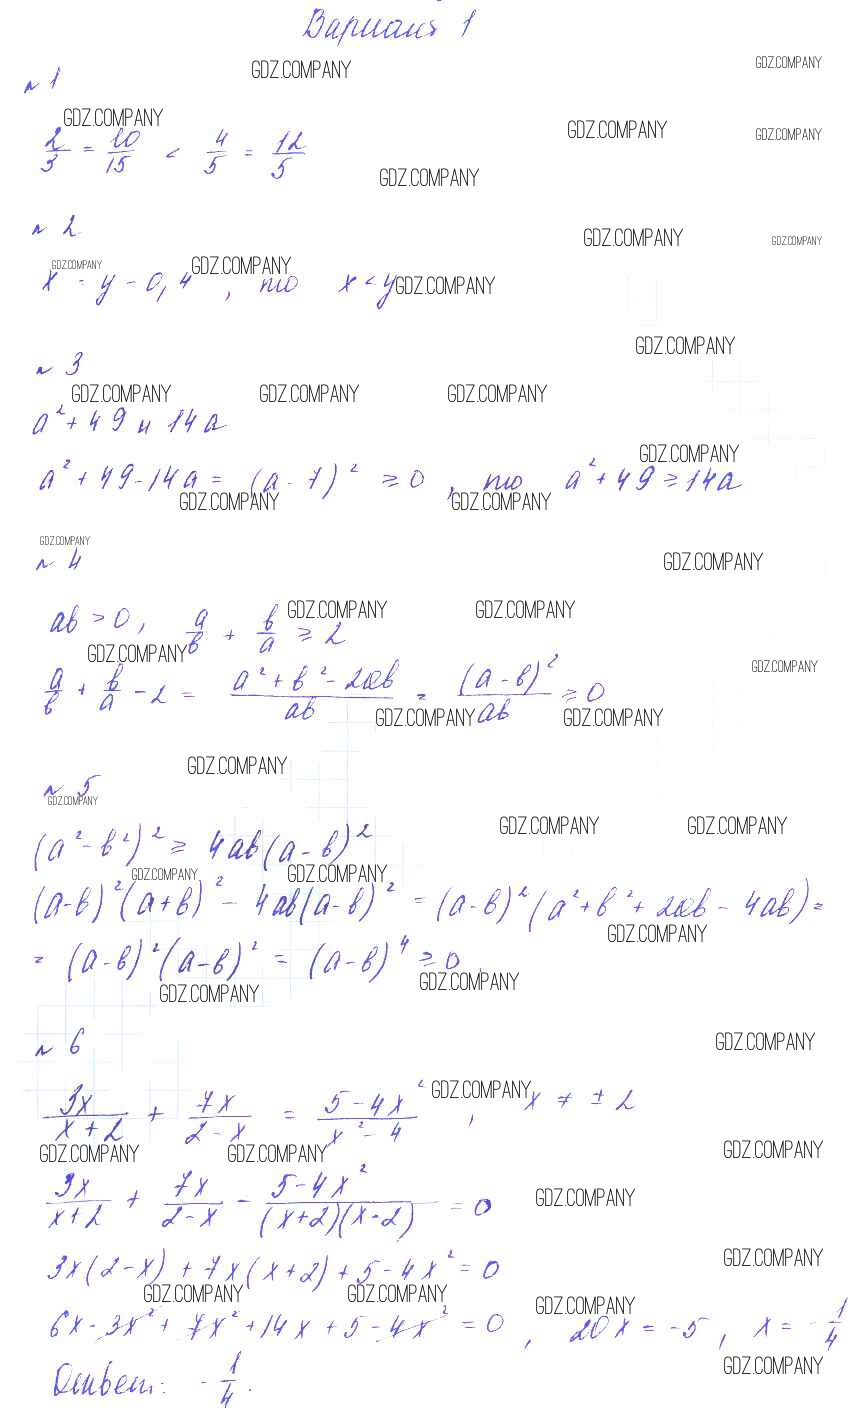 Вариант 1
GDZ.COMPANY GDZ.COMPANY
№ 1
GDZ.COMPANY GDZ.COMPANY GDZ.COMPANY
2/3 = 10/15 < 4/5 = 12/5
GDZ.COMPANY
№ 2
GDZ.COMPANY GDZ.COMPANY
GDZ.COMPANY GDZ.COMPANY
x - y - 0,4 , то x < y GDZ.COMPANY
GDZ.COMPANY
№ 3
GDZ.COMPANY GDZ.COMPANY GDZ.COMPANY
a² + 49 и 14a
GDZ.COMPANY
a² + 49 - 14a = (a - 7)² ≥ 0 , то a² + 49 ≥ 14a
GDZ.COMPANY GDZ.COMPANY
GDZ.COMPANY
№ 4 GDZ.COMPANY
GDZ.COMPANY GDZ.COMPANY
ab > 0 , a/b + b/a ≥ 2
GDZ.COMPANY GDZ.COMPANY
a/b + b/a - 2 = (a² + b² - 2ab)/ab = (a - b)²/ab ≥ 0
GDZ.COMPANY GDZ.COMPANY
GDZ.COMPANY
№ 5
GDZ.COMPANY
GDZ.COMPANY GDZ.COMPANY
(a² - b²)² ≥ 4ab(a - b)²
GDZ.COMPANY GDZ.COMPANY
(a - b)²(a + b)² - 4ab(a - b)² = (a - b)²(a² + b² + 2ab - 4ab) =
GDZ.COMPANY
= (a - b)²(a - b)² = (a - b)⁴ ≥ 0
GDZ.COMPANY GDZ.COMPANY
№ 6 GDZ.COMPANY
GDZ.COMPANY
3x/(x + 2) + 7x/(2 - x) = (5 - 4x²)/(x² - 4) , x ≠ ± 2
GDZ.COMPANY GDZ.COMPANY GDZ.COMPANY
3x/(x + 2) + 7x/(2 - x) - (5 - 4x²)/((x + 2)(x - 2)) = 0 GDZ.COMPANY
GDZ.COMPANY
3x(2 - x) + 7x(x + 2) + 5 - 4x² = 0
GDZ.COMPANY GDZ.COMPANY GDZ.COMPANY
6x - 3x² + 7x² + 14x + 5 - 4x² = 0 , 20x = -5 , x = - 1/4
GDZ.COMPANY
Ответ: - 1/4.